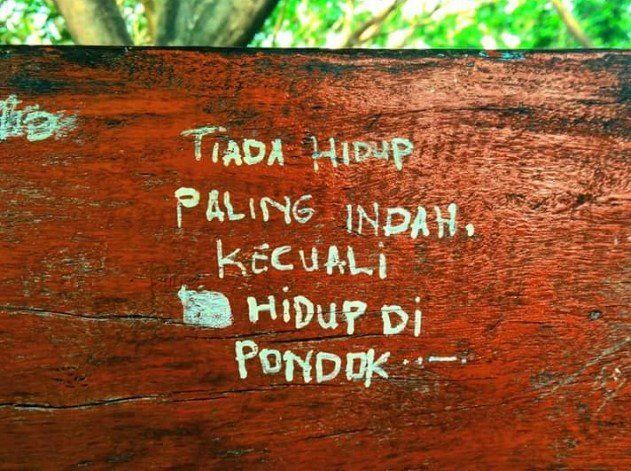 TIADA HIDUP
PALING INDAH.
KECUALI
HIDUP DI
PONDOK ..—.